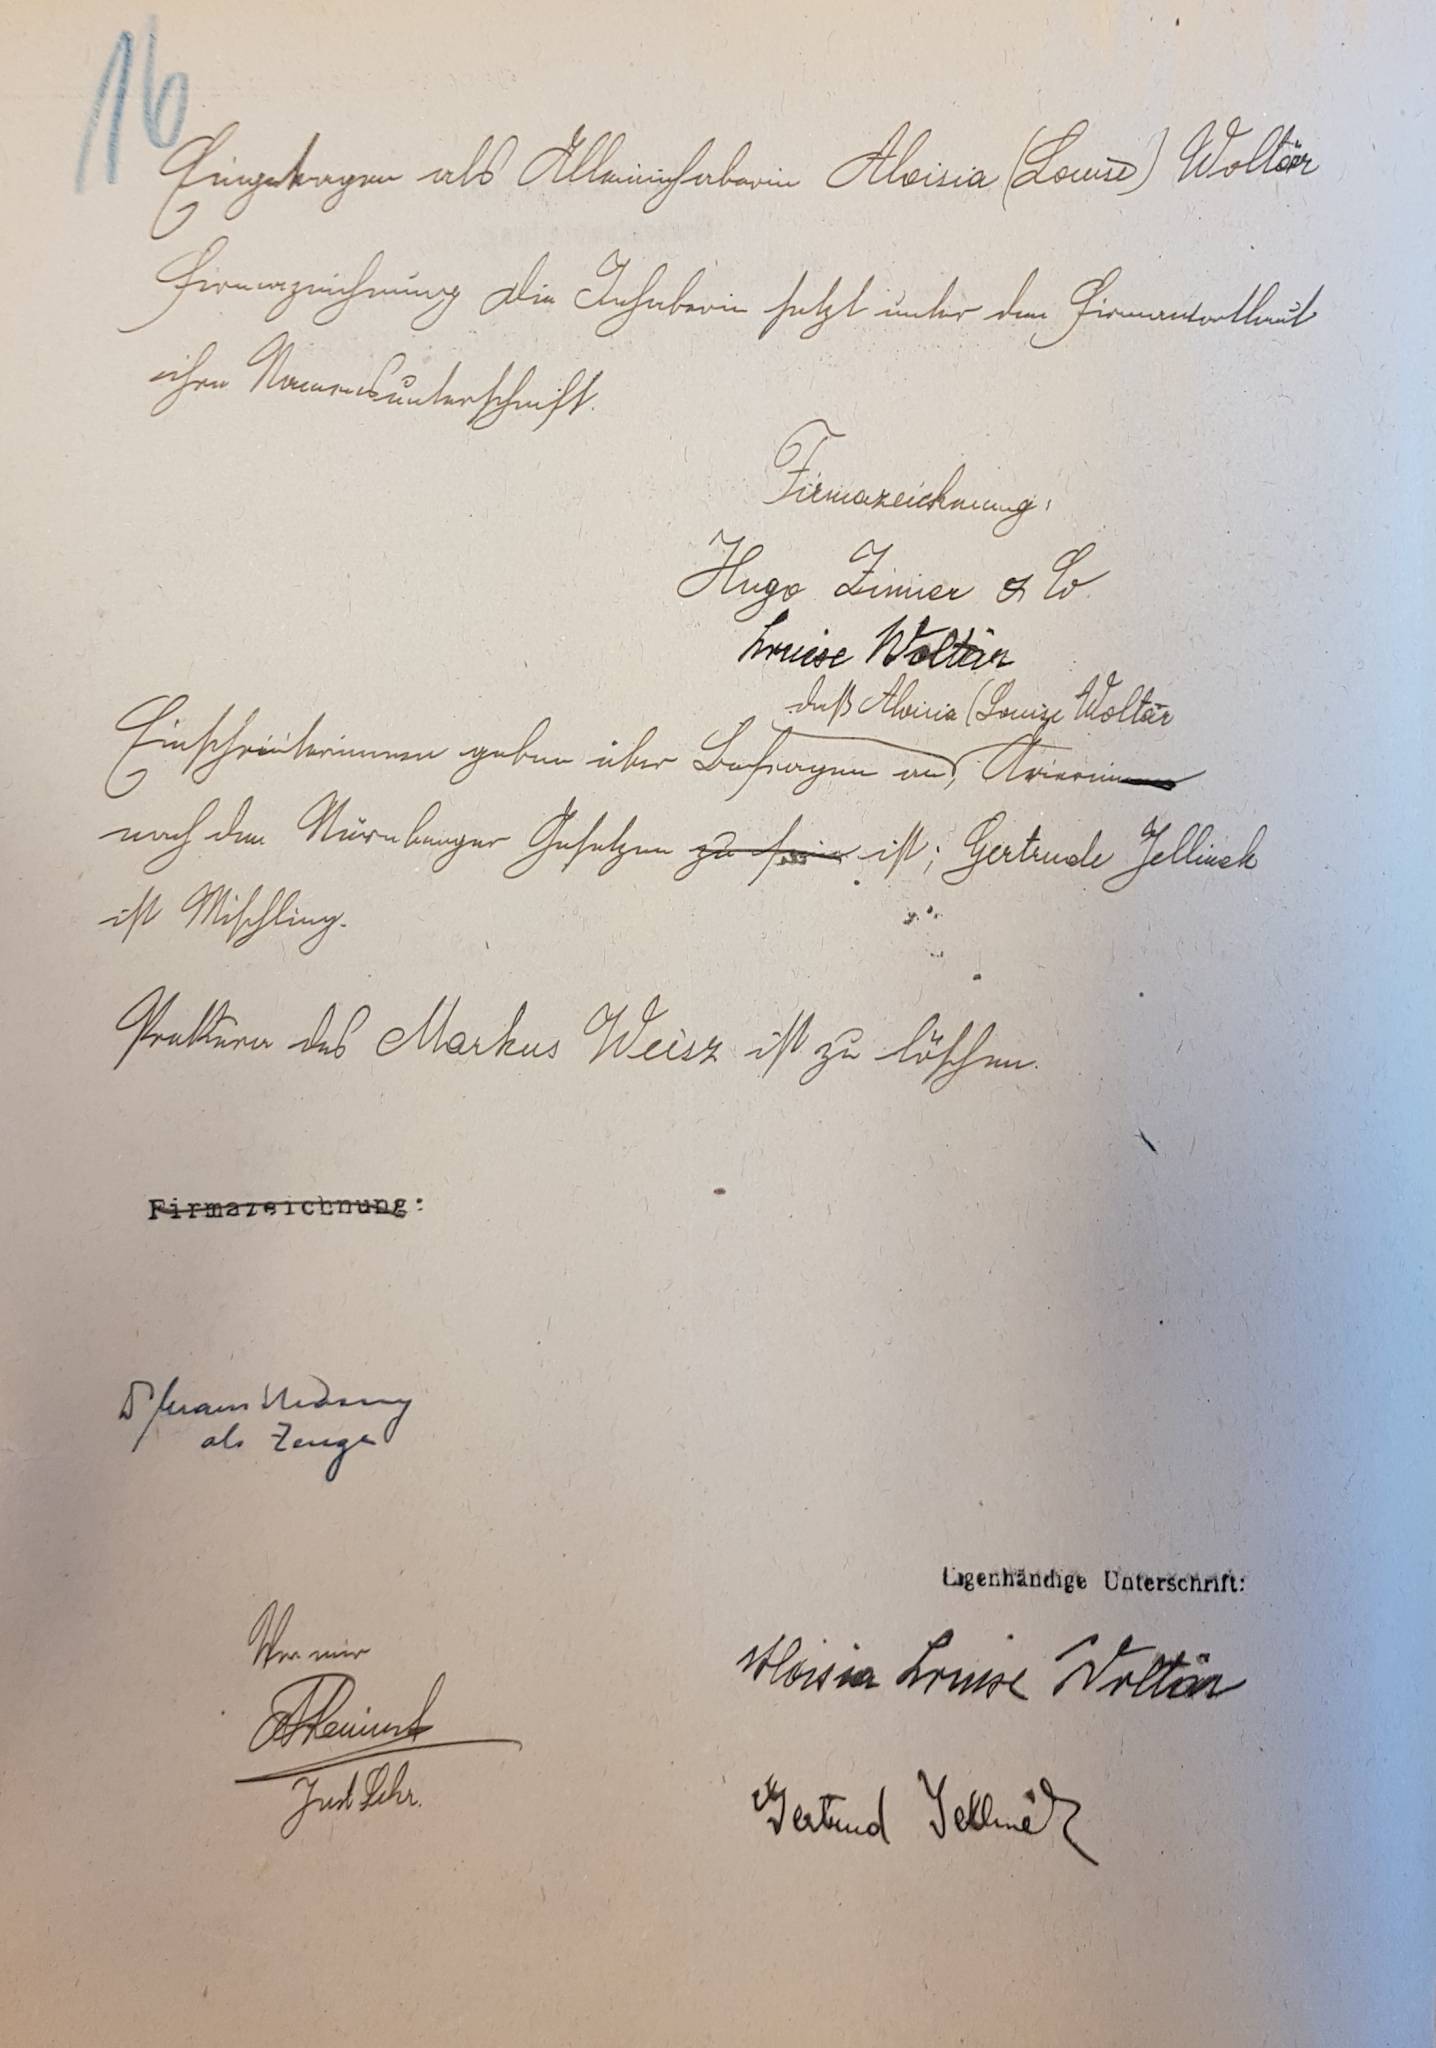 16
Eingetragen als Alleininhaberin Aloisia (Louise) Woltär
Firmazeichnung die Inhaberin setzt unter den Firmawortlaut
ihre Namensunterschrift.
Firmazeichnung:
Hugo Zimier & Co.
Louise Woltär
daß Aloisia (Louise Woltär
Einschreiterinnen geben über Befragen an, Arierin
nach den Nürnberger Gesetzen zu sein ist; Gertrude Jellinek
ist Mischling.
Prokura des Markus Weisz ist zu löschen.
Firmazeichnung:
als Zeuge
Eigenhändige Unterschrift:
Vor mir
Aloisia Louise Woltär
Gertrud Jellinek